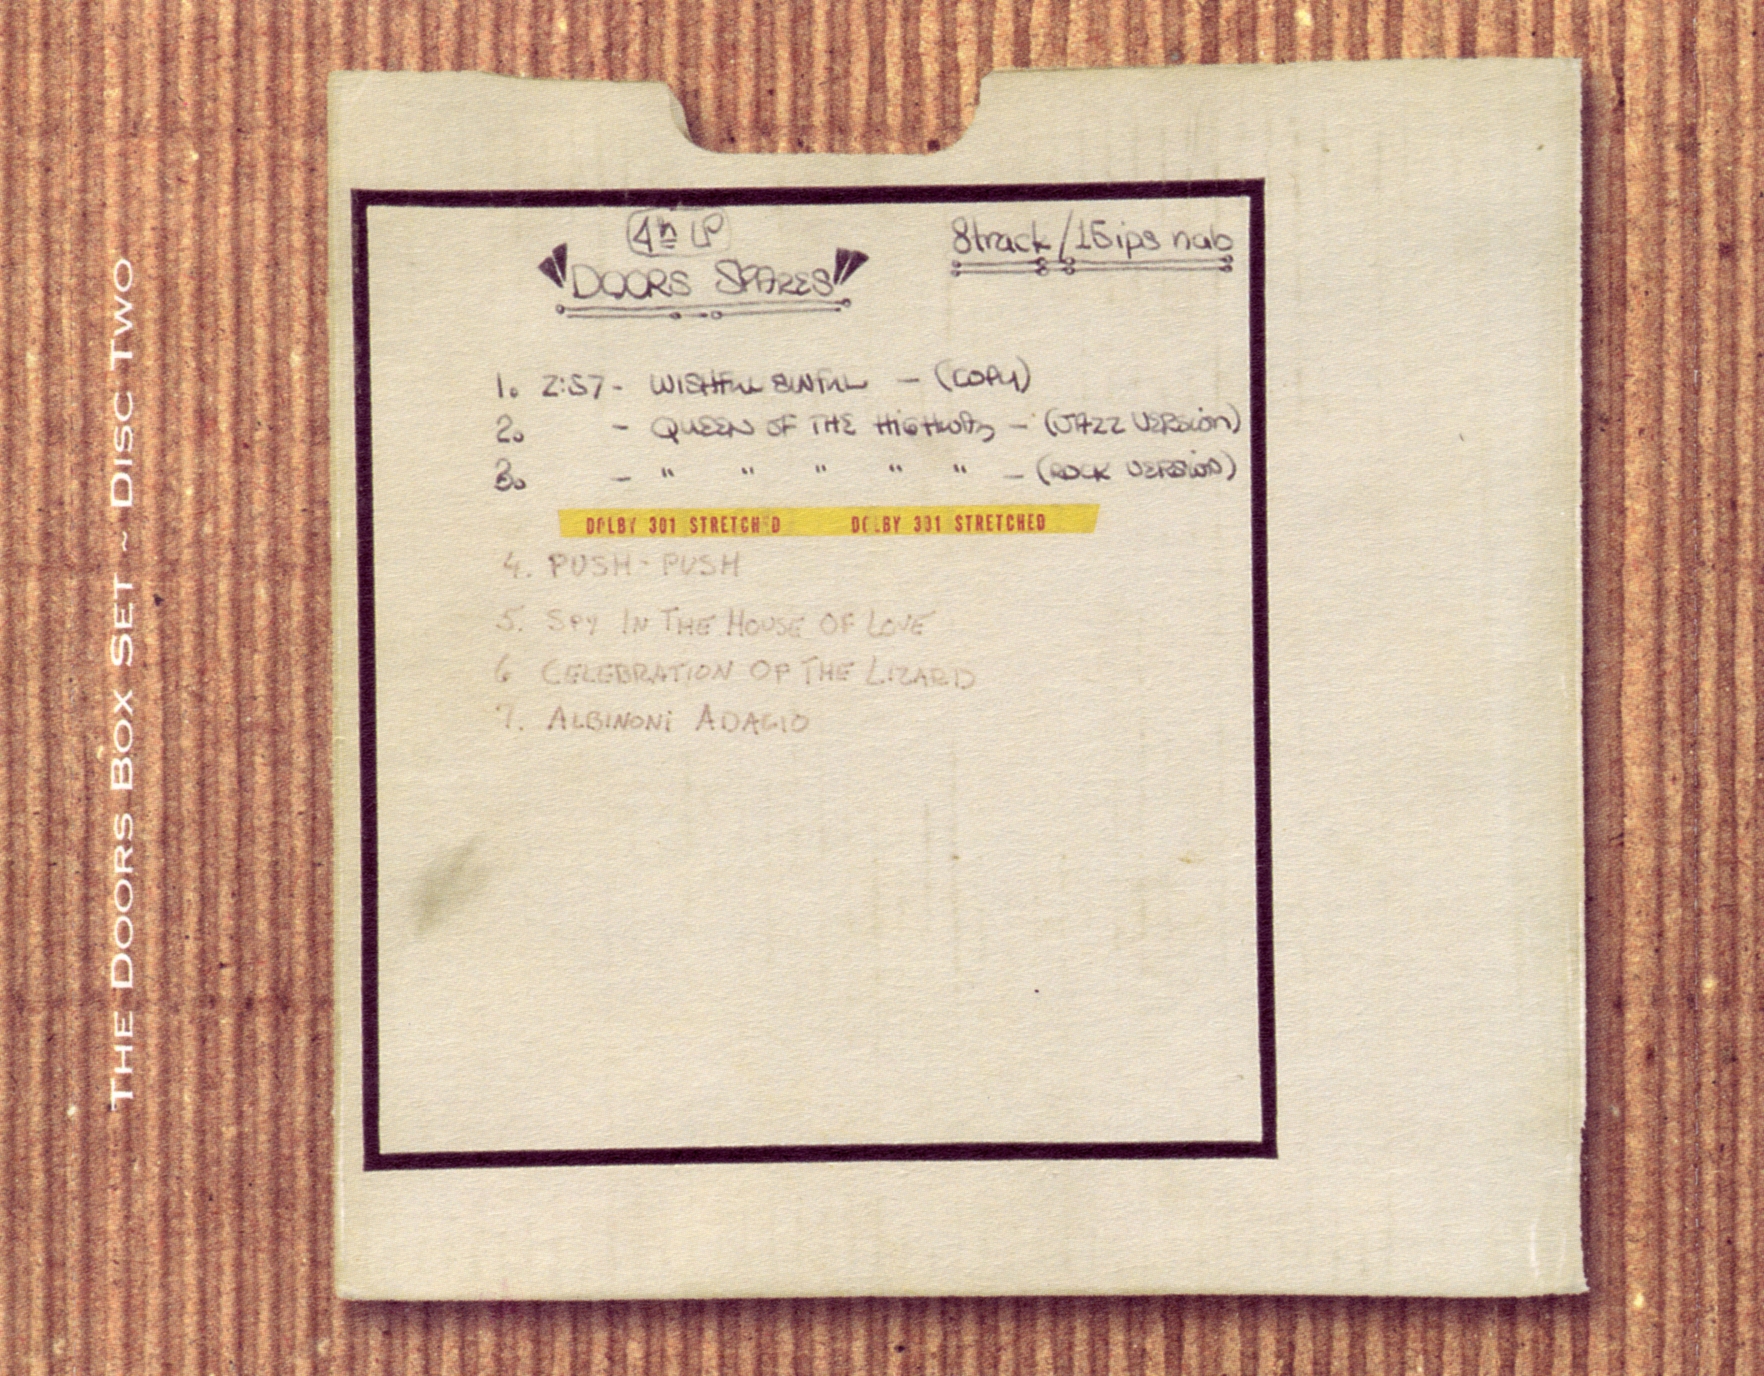 THE DOORS BOX SET ~ DISC TWO
4th LP
"DOORS SPARES"
8track/15ips nab
1. 2:57 - WISHFUL SINFUL - (COPY)
2. - QUEEN OF THE HIGHWAY - (JAZZ VERSION)
3. - " " " " " - (ROCK VERSION)
DOLBY 301 STRETCHED DOLBY 331 STRETCHED
4. PUSH-PUSH
5. SPY IN THE HOUSE OF LOVE
6 CELEBRATION OF THE LIZARD
7. ALBINONI ADAGIO